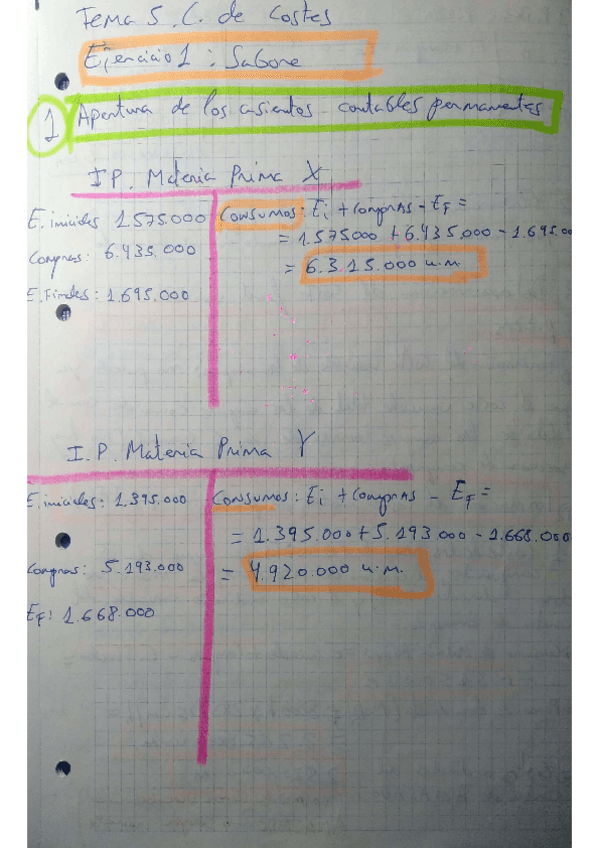 Tema 5. C. de Costes
Ejercicio 1: Sabone
1 Apertura de los asientos contables permanentes
I P. Materia Prima X
E. iniciales 1.575.000 Consumos: Ei + compras - EF =
= 1.575000 + 6.435.000 - 1.695.00
Compras: 6.435.000
= 6.315.000 u.m.
E. Finales: 1.695.000
I.P. Materia Prima Y
E. iniciales: 1.395.000 Consumos: Ei + compras - EF =
= 1.395.000 + 5.193.000 - 1.668.000
Compras: 5.193.000 = 4.920.000 u.m.
EF: 1.668.000